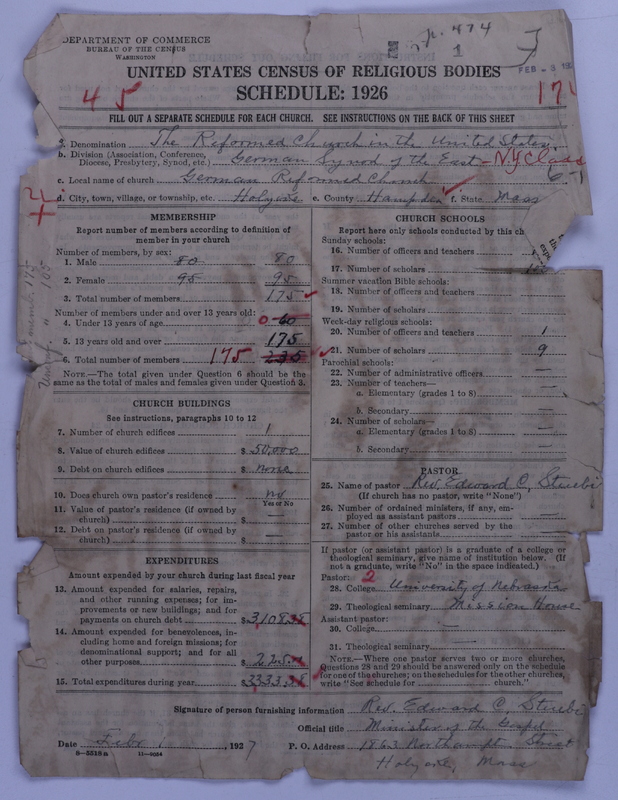 DEPARTMENT OF COMMERCE
BUREAU OF THE CENSUS
WASHINGTON
p. 474
1
FEB - 3 192
UNITED STATES CENSUS OF RELIGIOUS BODIES
SCHEDULE: 1926
45
174
FILL OUT A SEPARATE SCHEDULE FOR EACH CHURCH. SEE INSTRUCTIONS ON THE BACK OF THIS SHEET
a. Denomination The Reformed Church in the United States
b. Division (Association, Conference, Diocese, Presbytery, Synod, etc.) German Synod of the East - NY Class
6-1
c. Local name of church German Reformed Church
d. City, town, village, or township, etc. Holyoke e. County Hampden f. State Mass
MEMBERSHIP
Report number of members according to definition of
member in your church
Number of members, by sex:
1. Male 80 80
2. Female 95 95
3. Total number of members 175
Number of members under and over 13 years old:
4. Under 13 years of age 0 60
5. 13 years old and over 175
6. Total number of members 175 235
NOTE.—The total given under Question 6 should be
same as the total of males and females given under Question 3.
CHURCH BUILDINGS
See instructions, paragraphs 10 to 12
7. Number of church edifices 1
8. Value of church edifices $50,000
9. Debt on church edifices $ none
10. Does church own pastor's residence no
Yes or No
11. Value of pastor's residence (if owned by
church) $ —
12. Debt on pastor's residence (if owned by
church) $ —
EXPENDITURES
Amount expended by your church during last fiscal year
13. Amount expended for salaries, repairs,
and other running expenses; for im-
provements or new buildings; and for
payments on church debt $3,108.38
14. Amount expended for benevolences, in-
cluding home and foreign missions; for
denominational support; and for all
other purposes $225.
15. Total expenditures during year $3333.38
CHURCH SCHOOLS
Report here only schools conducted by this ch
Sunday schools:
16. Number of officers and teachers
17. Number of scholars
Summer vacation Bible schools:
18. Number of officers and teachers
19. Number of scholars
Week-day religious schools:
20. Number of officers and teachers 1
21. Number of scholars 9
Parochial schools:
22. Number of administrative officers —
23. Number of teachers—
a. Elementary (grades 1 to 8) —
b. Secondary —
24. Number of scholars—
a. Elementary (grades 1 to 8) —
b. Secondary —
PASTOR
25. Name of pastor Rev. Edward C. Stuebi
(If church has no pastor, write "None")
26. Number of ordained ministers, if any, em-
ployed as assistant pastors —
27. Number of other churches served by the
pastor or his assistants —
If pastor (or assistant pastor) is a graduate of a college or
theological seminary, give name of institution below. (If
not a graduate, write "No" in the space indicated.)
Pastor: 2
28. College University of Nebraska
29. Theological seminary Mission House
Assistant pastor:
30. College —
31. Theological seminary —
NOTE.—Where one pastor serves two or more churches,
Questions 28 and 29 should be answered only on the schedule
for one of the churches; on the schedules for the other churches,
write "See schedule for church."
Signature of person furnishing information Rev. Edward C. Stuebi
Official title Minister of the Gospel
Date Feb. 1, 1927 P. O. Address 1863 Northampt. Street
8—5518a 11—9054
Holyoke, Mass